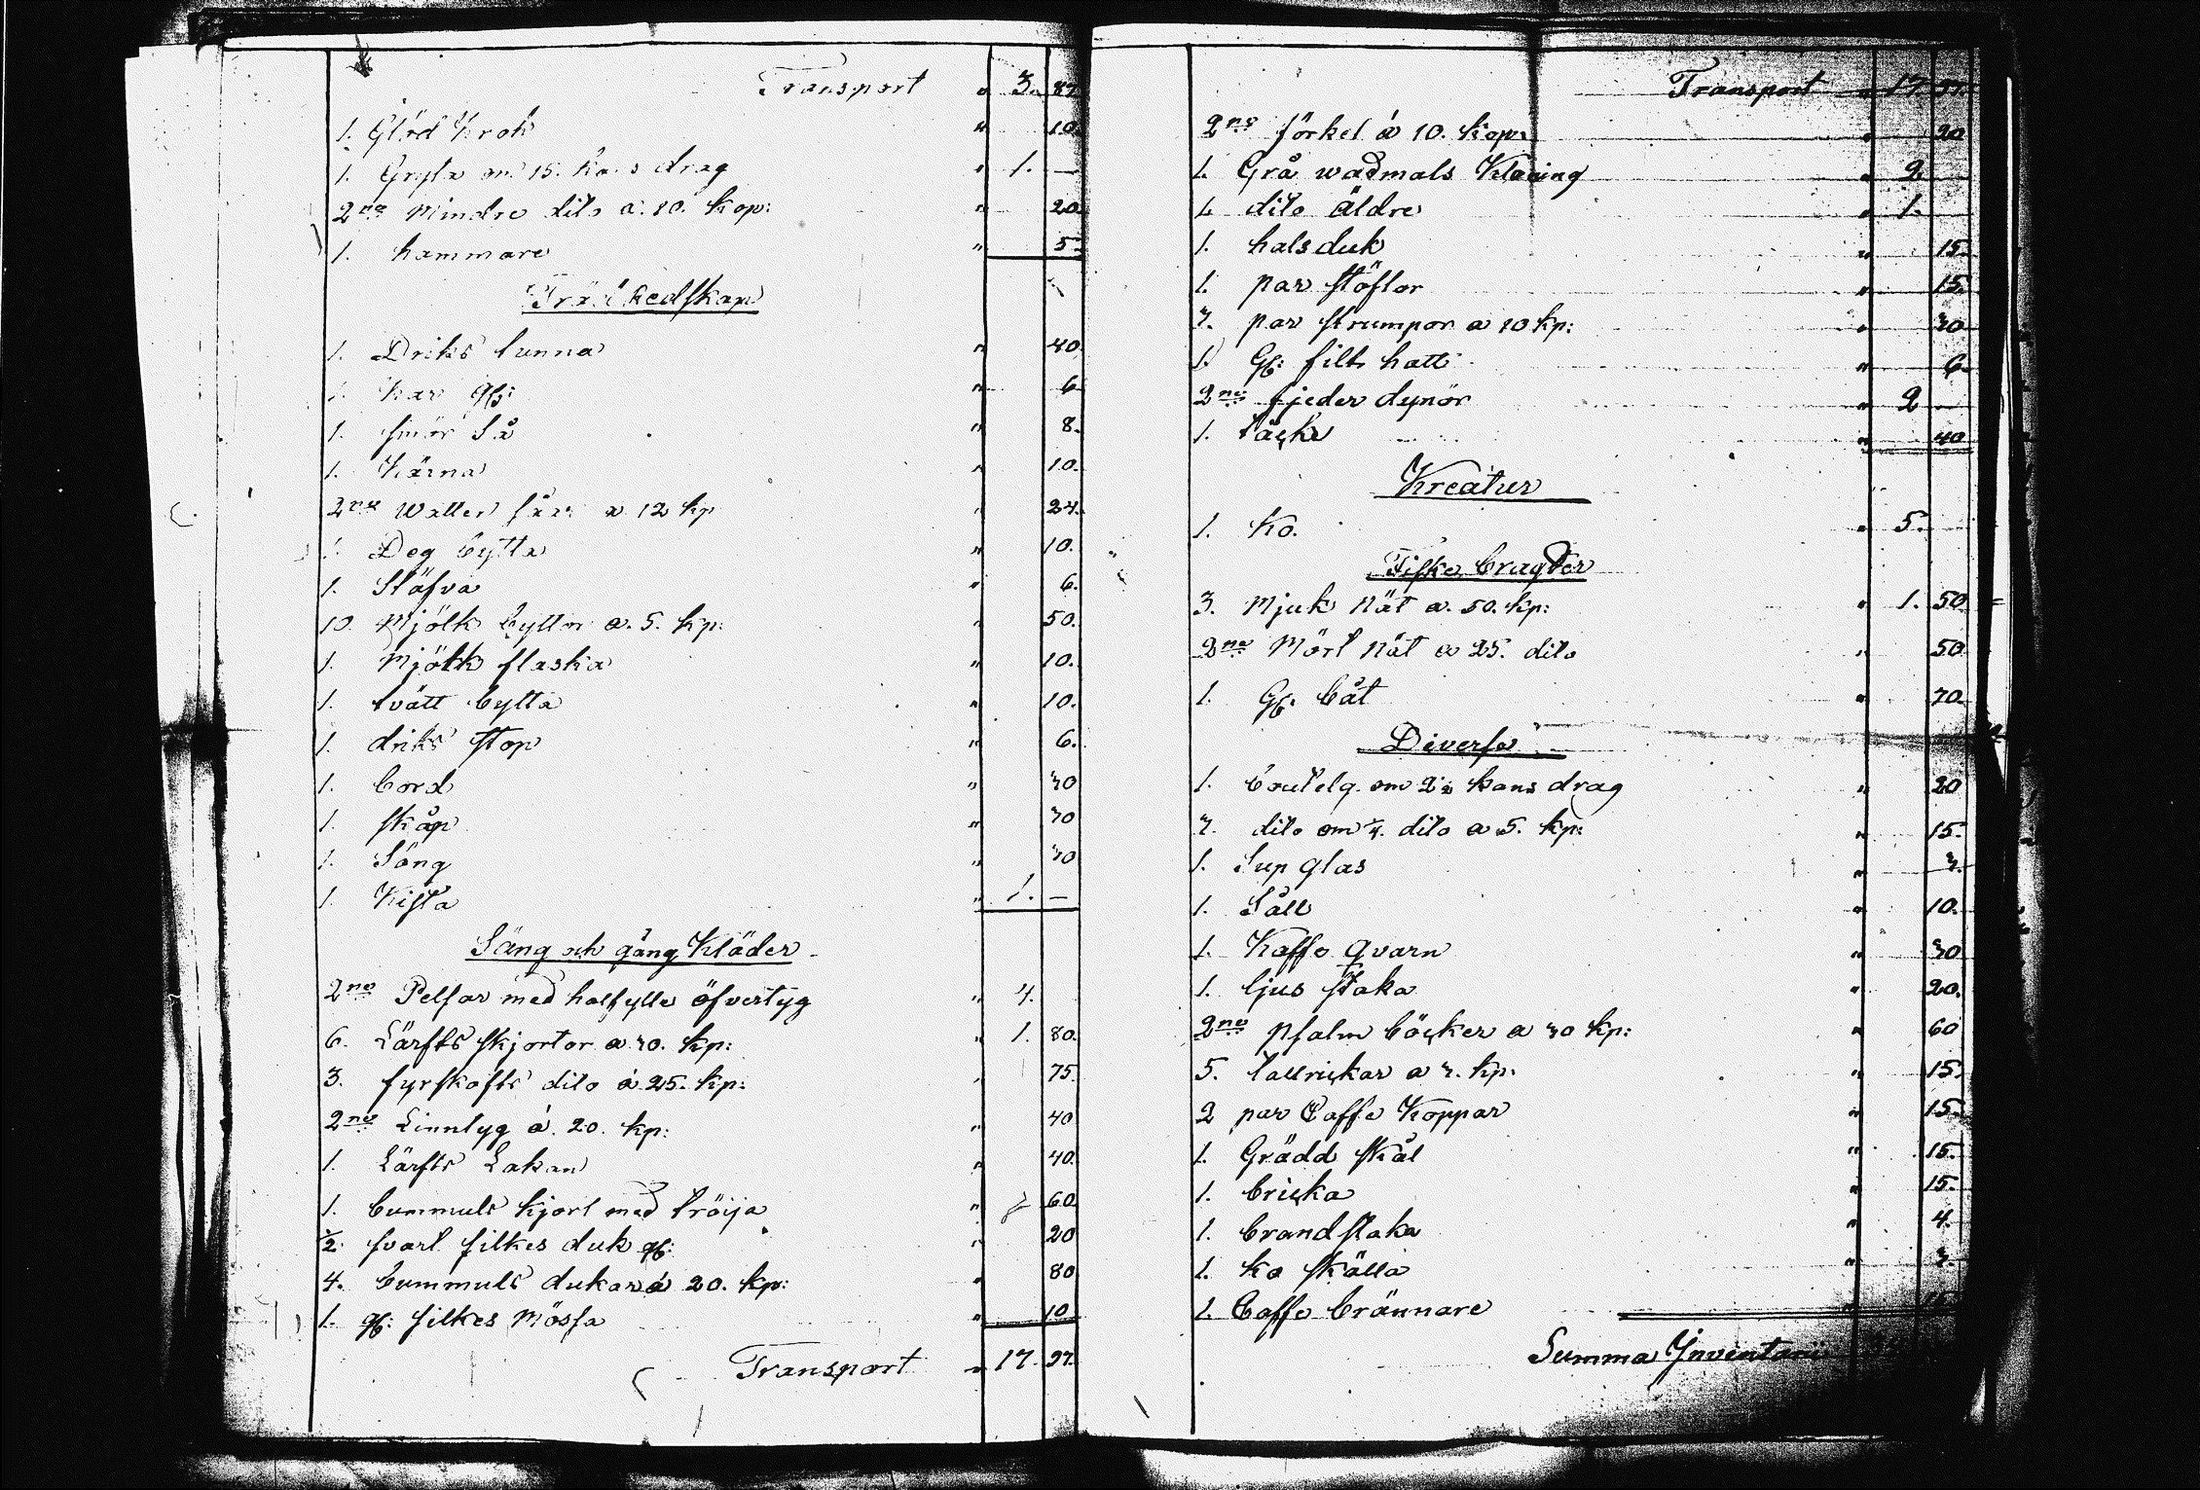 Transport " 3. 87.
1. Glöd Krok " 10.
1. Gryta om 15. kans drag " 1. —
2ne Mindre dito a. 10. kop: " 20
1. hammare " 5.
Träredskap
1. Driks tunna " 40
1. Kar gl: " 6
1. smör Så " 8.
1. Kärna " 10.
2ne Watten såar a 12 kp " 24.
1. Deg bytta " 10.
1. Stäfva " 6.
10. Mjölk byttor a. 5. kp: " 50.
1. Mjölk flaska " 10.
1. tvätt bytta " 10.
1. driks stop " 6.
1. bord " 30
1. skåp " 30
1. Säng " 30
1. Kista " 1. —
Säng och gång Kläder
2ne Pelsar med halfylle öfvertyg " 4.
6. Lärfts skjortor a 30. kp: " 1. 80.
3. fyrskafts dito á 25. kp: " 75.
2ne Linntyg á 20. kp: " 40
1. Lärfts Lakan " 40.
1. bummuls kjort med tröija " 60.
1/2 svart silkes duk gl: " 20
4. bummuls dukar á 20. kp: " 80
1. gl: silkes Mössa " 10
Transport " 17. 97.
Transport " 17. 97.
2ne förkel á 10. kop: " 20
1. Grå wadmals Klädning " 2. —
1. dito äldre " 1.
1. halsduk " 15.
1. par stöflor " 15.
3. par strumpor a 10 kp: " 30
1. Gl: filt hatt " 6.
2ne fjeder dynor " 2 —
1. täcke " 40
Kreatur
1. Ko. " 5. —
Fiske bragder
3. Mjuk Nät a. 50. kp: " 1. 50
2ne Mört Nät a 25. dito " 50
1. Gl: båt " 70.
Diverse
1. boutelg om 2½ kans drag " 20
3. dito om ¼. dito a 5. kp: " 15.
1. Sup glas " 3.
1. Såll " 10.
1. Kaffe qvarn " 30
1. ljus staka " 20.
2ne Psalm böcker a 30 kp: " 60
5. tallrickar a 3. kp: " 15.
2 par Caffe Koppar " 15.
1. Grädd skål " 15.
1. bricka " 15.
1. brandstaka " 4.
1. ko skälla " 3.
1. Caffe brännare " 15
Summa Inventari